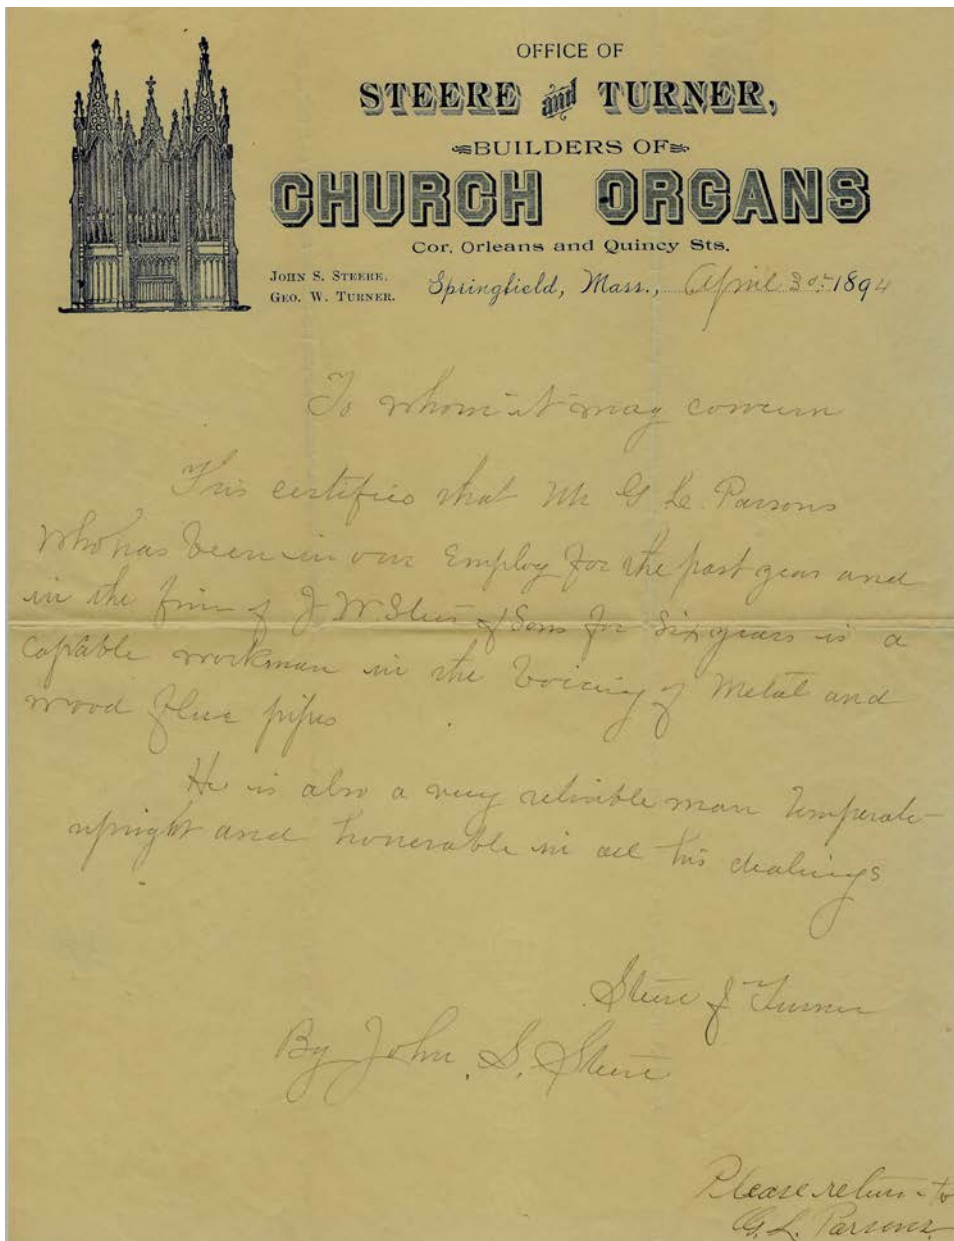 OFFICE OF
STEERE and TURNER,
BUILDERS OF
CHURCH ORGANS
Cor. Orleans and Quincy Sts.
JOHN S. STEERE.
GEO. W. TURNER.
Springfield, Mass., April 3d 1894
To whom it may concern
This certifies that Mr G L. Parsons
who has been in our Employ for the past year and
in the firm of J W. Steere & Sons for Six years is a
capable workman in the Voicing of Metal and
wood flue pipes
He is also a very reliable man Temperate
upright and honorable in all his dealings
Steere & Turner
By John S. Steere
Please return to
G. L. Parsons.